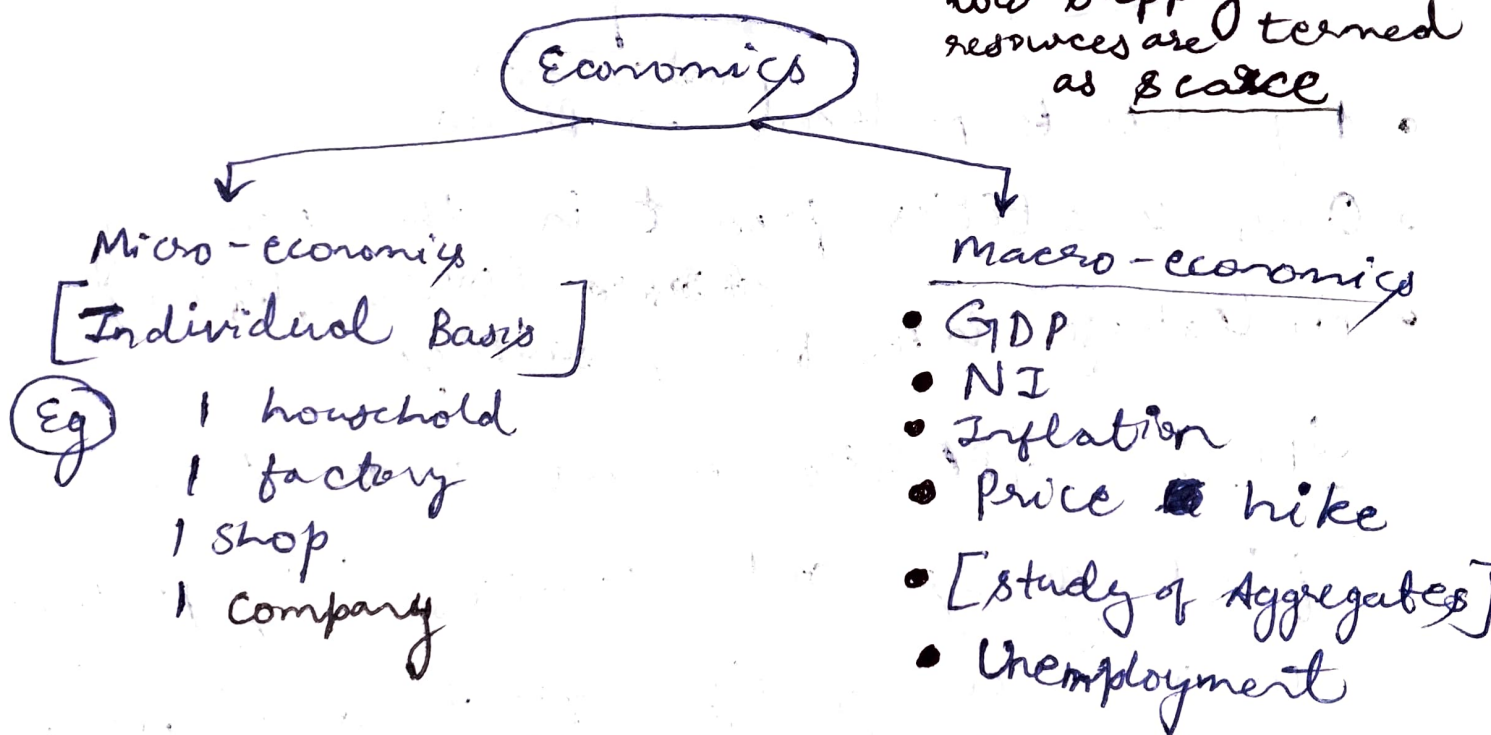 resources are termed
as scarce
Economics
Micro-economics.
[Individual Basis]
Eg 1 household
1 factory
1 shop.
1 company
Macro-economics
• GDP
• NI
• Inflation
• Price hike
• [study of Aggregates]
• Unemployment